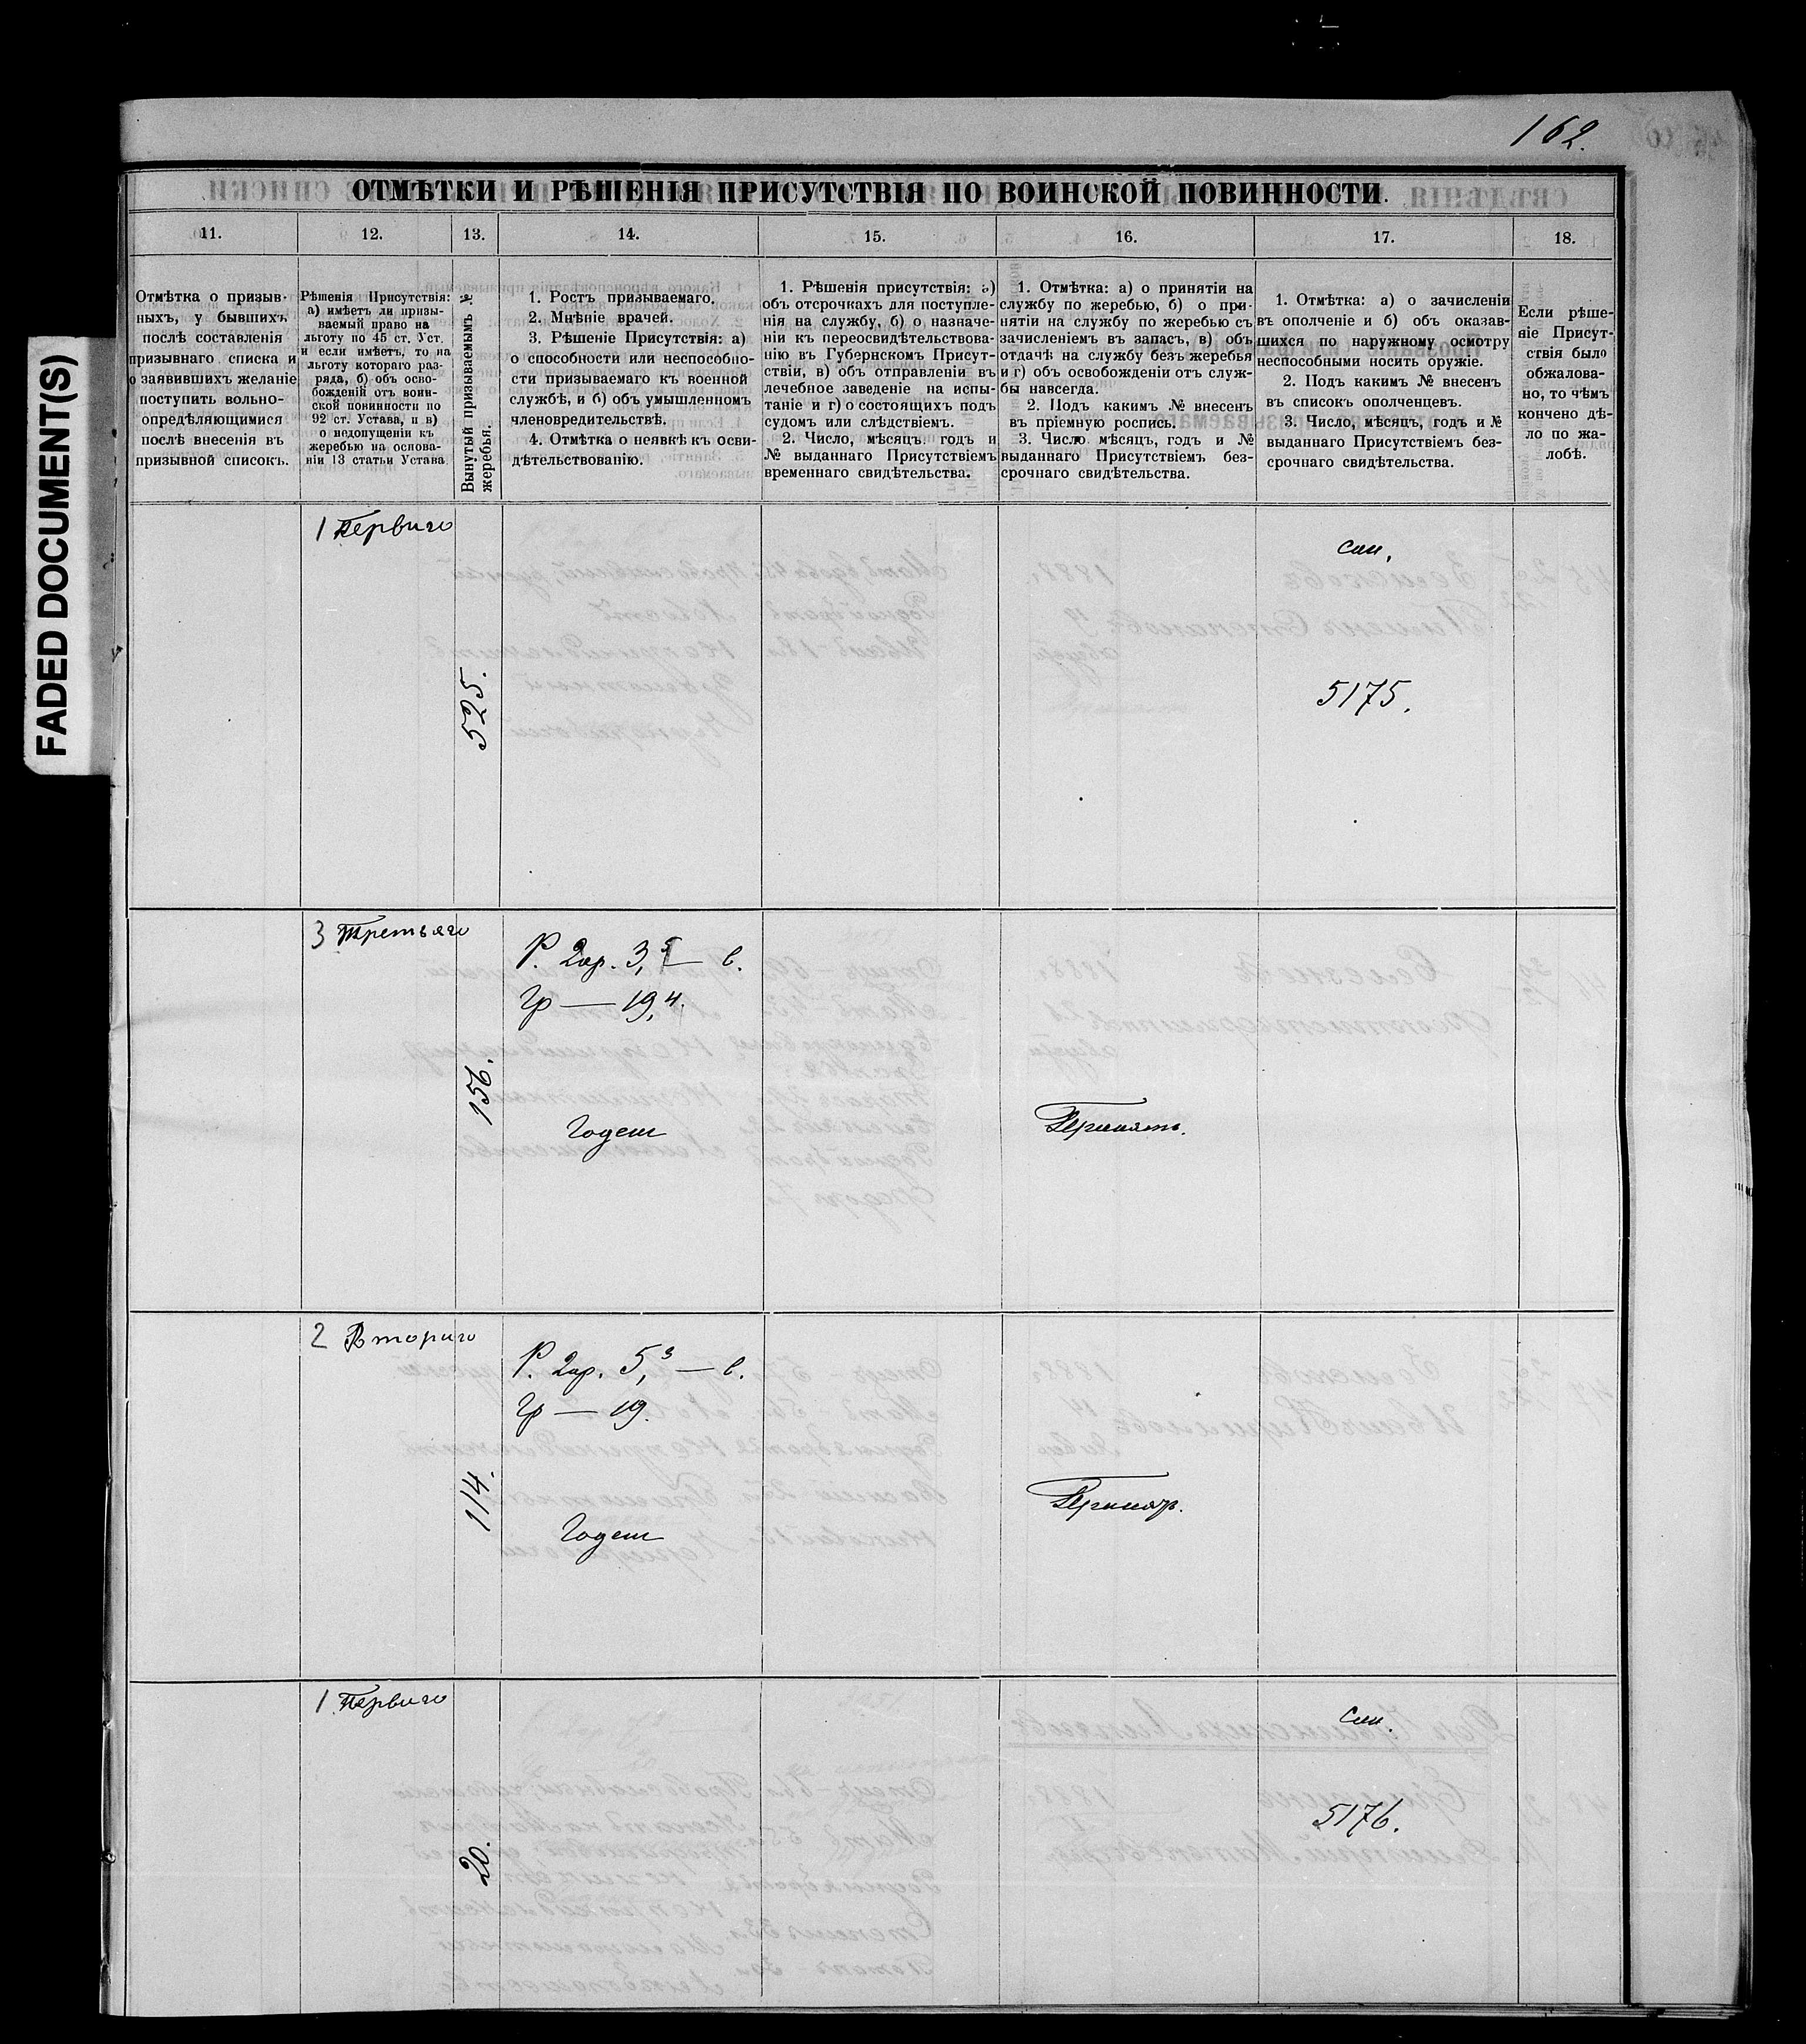 162.
FADED DOCUMENT(S)
ОТМѢТКИ И РѢШЕНІЯ ПРИСУТСТВІЯ ПО ВОИНСКОЙ ПОВИННОСТИ.
11.
12.
13.
14.
15.
16.
17.
18.
Отмѣтка о призыв-
ныхъ, у бывшихъ
послѣ составленія
призывнаго списка и
о заявившихъ желаніе
поступить вольно-
опредѣляющимися
послѣ внесенія въ
призывной списокъ.
Рѣшенія Присутствія:
а) имѣетъ ли призы-
ваемый право на
льготу по 45 ст. Уст.
и если имѣетъ, то на
льготу котораго раз-
ряда, б) объ осво-
божденій отъ воин-
ской повинности по
92 ст. Устава, и в)
о недопущеніи къ
жеребью на основа-
ніи 13 статьи Устава
Вынутый призываемымъ №
жеребья.
1. Ростъ призываемаго.
2. Мнѣніе врачей.
3. Рѣшеніе Присутствія: а)
о способности или неспособно-
сти призываемаго къ военной
службѣ, и б) объ умышленномъ
членовредительствѣ.
4. Отмѣтка о неявкѣ къ осви-
дѣтельствованію.
1. Рѣшенія присутствія: а)
объ отсрочкахъ для поступле-
нія на службу, б) о назначе-
ніи къ переосвидѣтельствова-
нію въ Губернскомъ Присут-
ствіи, в) объ отправленіи въ
лечебное заведеніе на испы-
таніе и г) о состоящихъ подъ
судомъ или слѣдствіемъ.
2. Число, мѣсяцъ, годъ и
№ выданнаго Присутствіемъ
временнаго свидѣтельства.
1. Отмѣтка: а) о принятіи на
службу по жеребью, б) о при-
нятіи на службу по жеребью съ
зачисленіемъ въ запасъ, в) объ
отдачѣ на службу безъ жеребья
и г) объ освобожденіи отъ служ-
бы навсегда.
2. Подъ какимъ № внесенъ
въ пріемную роспись.
3. Число, мѣсяцъ, годъ и №
выданнаго Присутствіемъ без-
срочнаго свидѣтельства.
1. Отмѣтка: а) о зачисленіи
въ ополченіе и б) объ оказав-
шихся по наружному осмотру
неспособными носить оружіе.
2. Подъ какимъ № внесенъ
въ списокъ ополченцевъ.
3. Число, мѣсяцъ, годъ и №
выданнаго Присутствіемъ без-
срочнаго свидѣтельства.
Если рѣше-
ніе Присут-
ствія было
обжалова-
но, то чѣмъ
кончено дѣ-
ло по жа-
лобѣ.
1 Перваго
525.
5175.
3 Третьяго
156.
Р. 2ар. 3,5 — в.
Гр — 19,4.
Годенъ
Принятъ.
2 Втораго
114.
Р. 2ар. 5,3 — в.
Гр — 19.
Годенъ
Принятъ.
1 Перваго
20.
5176.